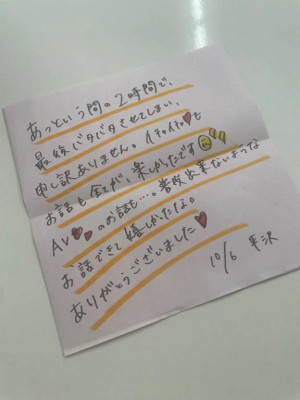 あっという間の2時間で、
最後バタバタさせてしまい、
申し訳ありません。イチャイチャ♥も
お話も全てが、楽しかったです
AV♥のお話も…。普段出来ないような
お話できて嬉しかったな。
ありがとうございました♥
10/6 平沢